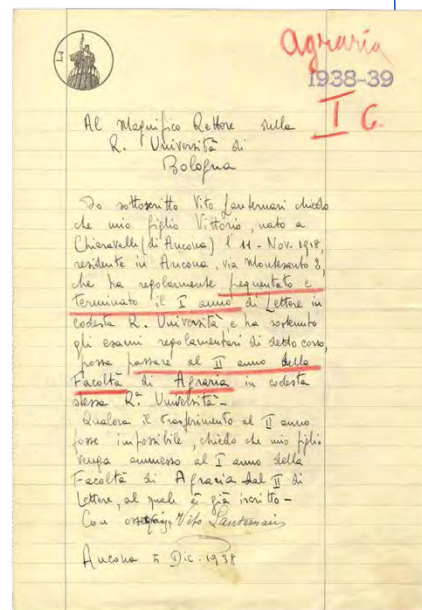 Agraria
1938-39
I C.
Al Magnifico Rettore della
R. Università di
Bologna
Io sottoscritto Vito Lanternari chiedo
che mio figlio Vittorio, nato a
Chiaravalle (di Ancona) l' 11 - Nov. 1918,
residente in Ancona, via Montesanto 8,
che ha regolarmente frequentato e
terminato il I anno di Lettere in
codesta R. Università, e ha sostenuto
gli esami regolamentari di detto corso,
possa passare al II anno della
Facoltà di Agraria in codesta
stessa R. Università -
Qualora il trasferimento al II anno
fosse impossibile, chiedo che mio figlio
venga ammesso al I anno della
Facoltà di Agraria dal II di
Lettere, al quale è già iscritto -
Con Vito Lanternari
Ancona 5 Dic. 1938